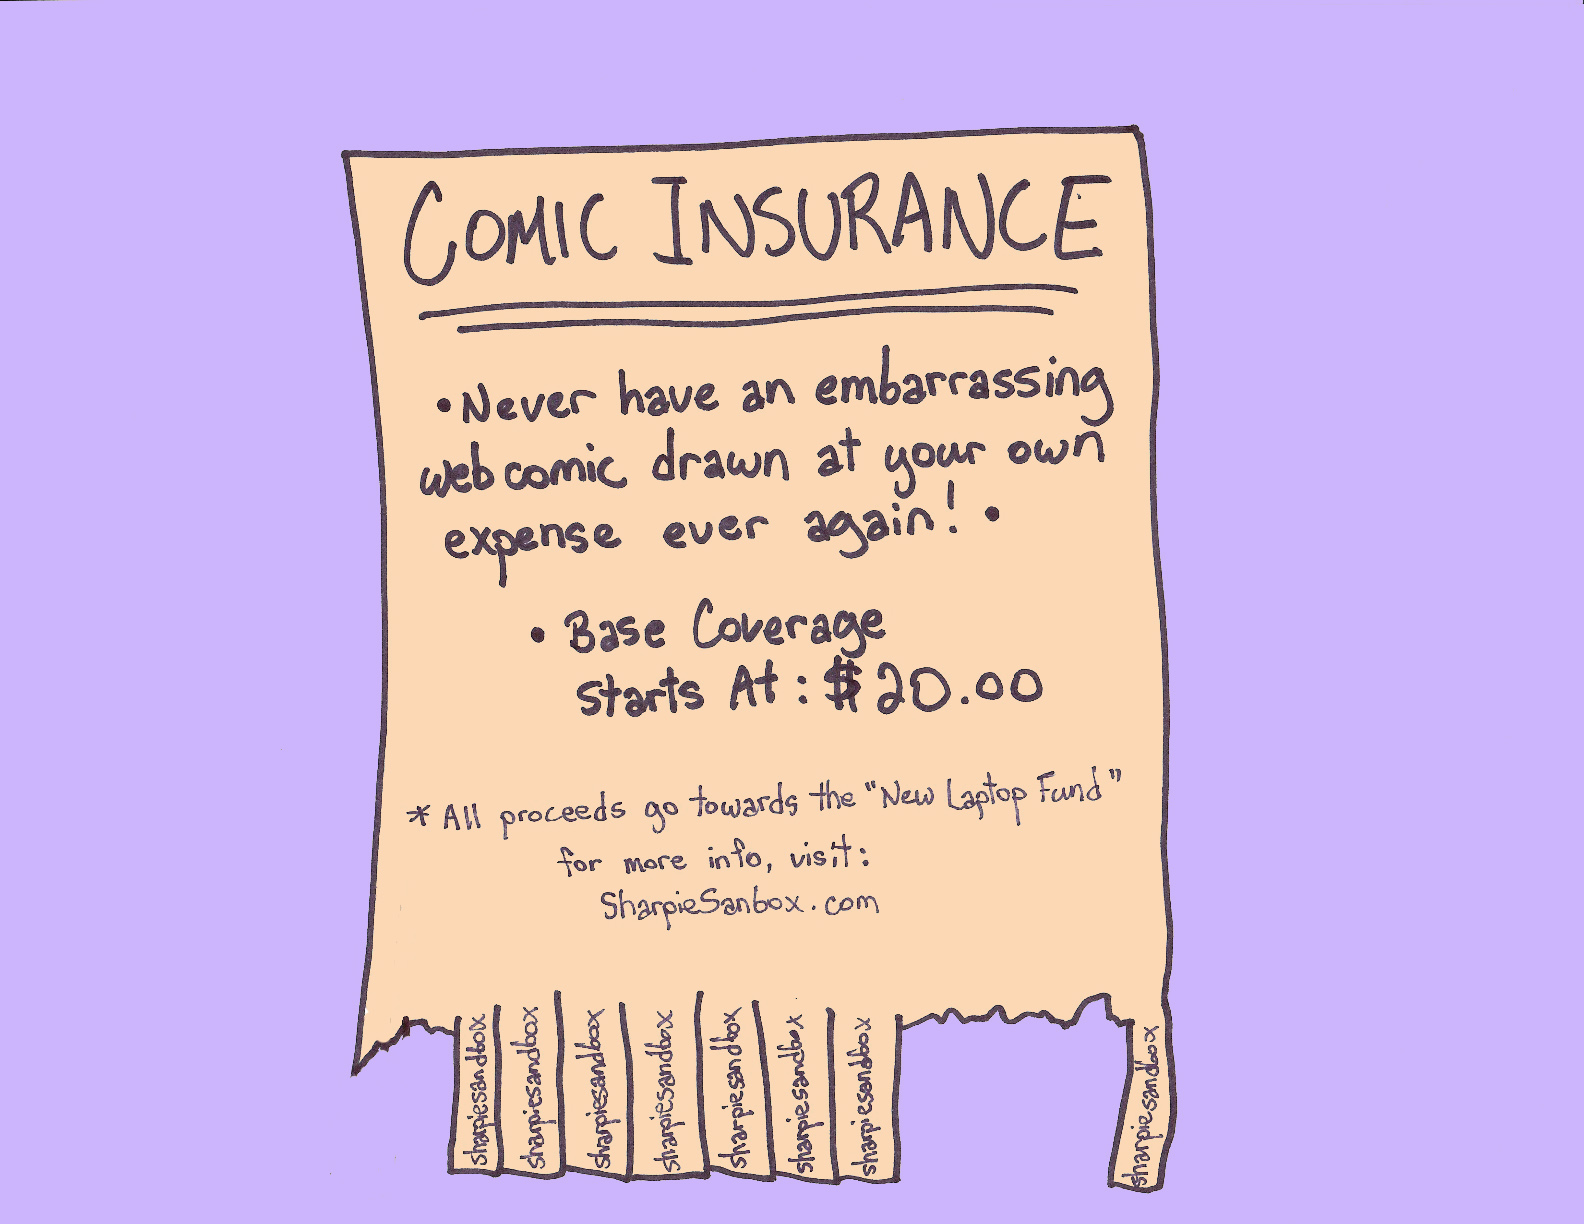 COMIC INSURANCE
• Never have an embarrassing
webcomic drawn at your own
expense ever again! •
• Base Coverage
starts At: $20.00
* All proceeds go towards the "New Laptop Fund"
for more info, visit:
SharpieSanbox.com
sharpiesandbox
sharpiesandbox
sharpiesandbox
sharpiesandbox
sharpiesandbox
sharpiesandbox
sharpiesandbox
sharpiesandbox